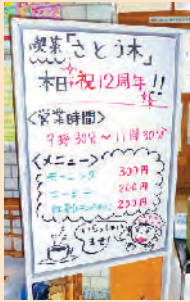 喫茶「さとう木」
本日祝12周年!!
〈営業時間〉
9時30分〜11時30分
〈メニュー〉
モーニング 300円
コーヒー 200円
200円
いらっしゃい
ませ!